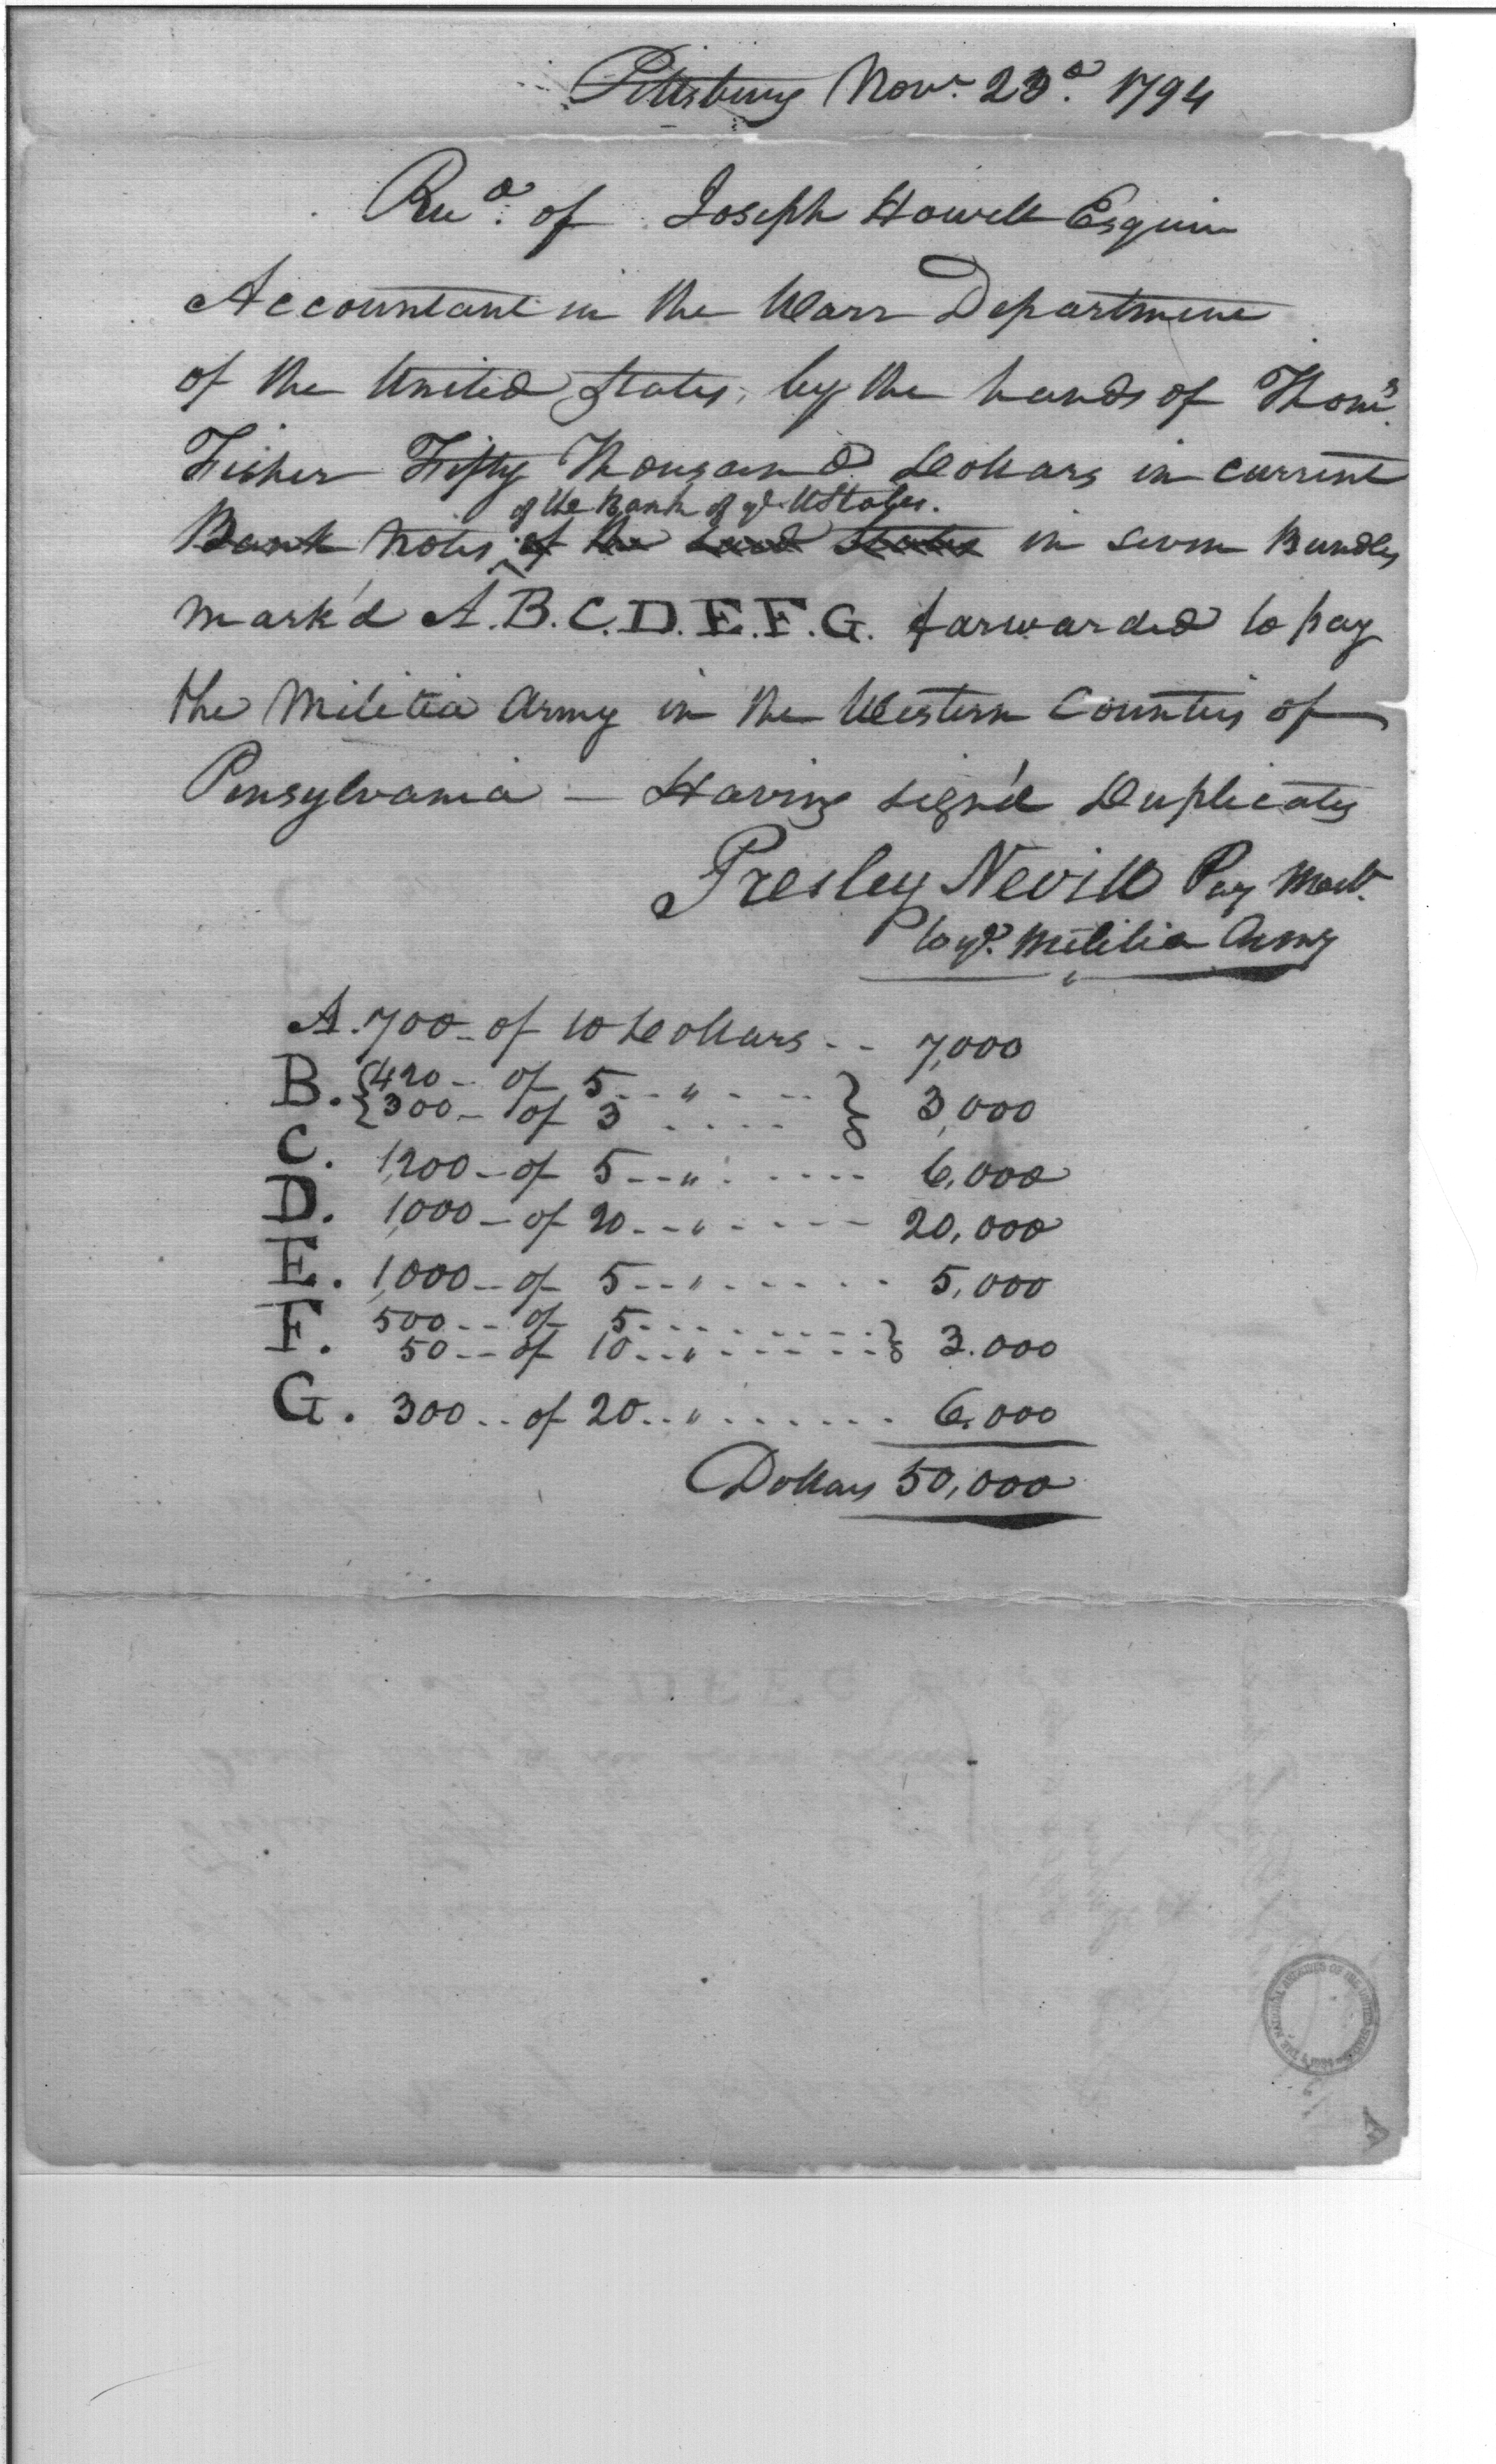 Pittsburg Novr. 23d. 1794
Recd. of Joseph Howell Esquire
Accountant in the Warr Department
of the United States, by the hands of Thoms.
Fisher Fifty Thousand Dollars in current
of the Bank of ye. UStates.
Bank notes of the said States in seven Bundles
mark'd A.B.C.D.E.F.G. forwarded to pay
the Militia Army in the Western Counties of
Pensylvania – Having sign'd Duplicates
Presley Nevill Pay Mastr.
to ye. Militia Army
A. 700 - of 10 Dollars - - 7,000
B. {420 - of 5 - - " - - - } 3,000
{300 - of 3 . . . . }
C. 1,200 - of 5 - - " - - - - - 6,000
D. 1,000 - of 20 - - " - - - - 20,000
E. 1,000 - of 5 - - " - - - - - 5,000
F. 500 - - of 5 - - - - - - - - }
50 - - of 10 - - " - - - - - } 3.000
G. 300 - - of 20 - - " - - - - - 6,000
Dollars 50,000
THE NATIONAL ARCHIVES OF THE UNITED STATES